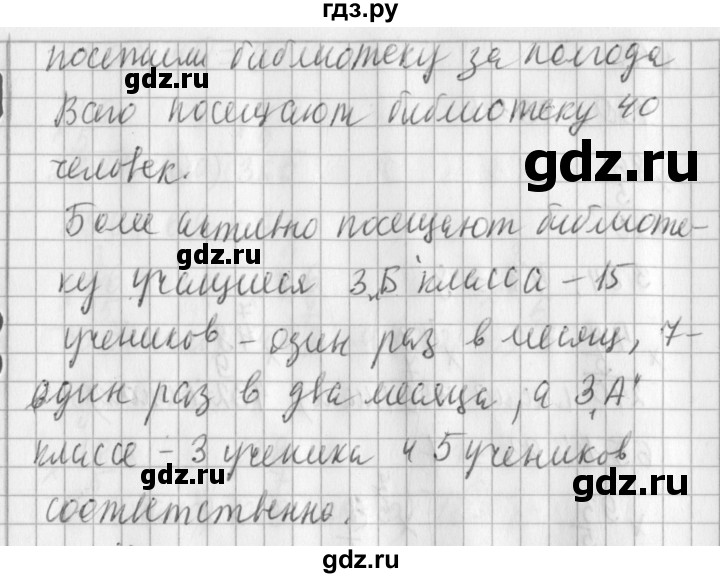 гдз.ру
посетили библиотеку за полгода
gdz.ru
Всего посещают библиотеку 40
gdz.ru
человек.
Более активно посещают библиоте-
gdz.ru
ку учащиеся 3 „Б" класса – 15
учеников – один раз в месяц, 7–
gdz.ru
один раз в два месяца, а 3 „А"
классе – 3 ученика и 5 учеников
gdz.ru
gdz.ru
соответственно.
gdz.ru